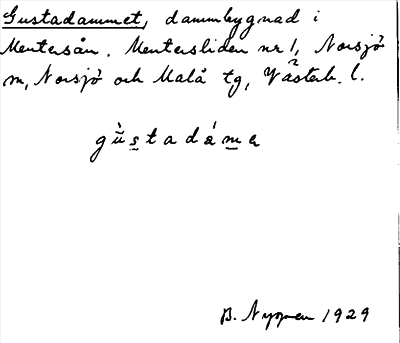 Gustadammet, dammbygnad i
Mentersån. Mentersliden nr 1, Norsjö
sn, Norsjö och Malå tg, Västerb. l.
gùstadámɐ
B. Nyman 1929